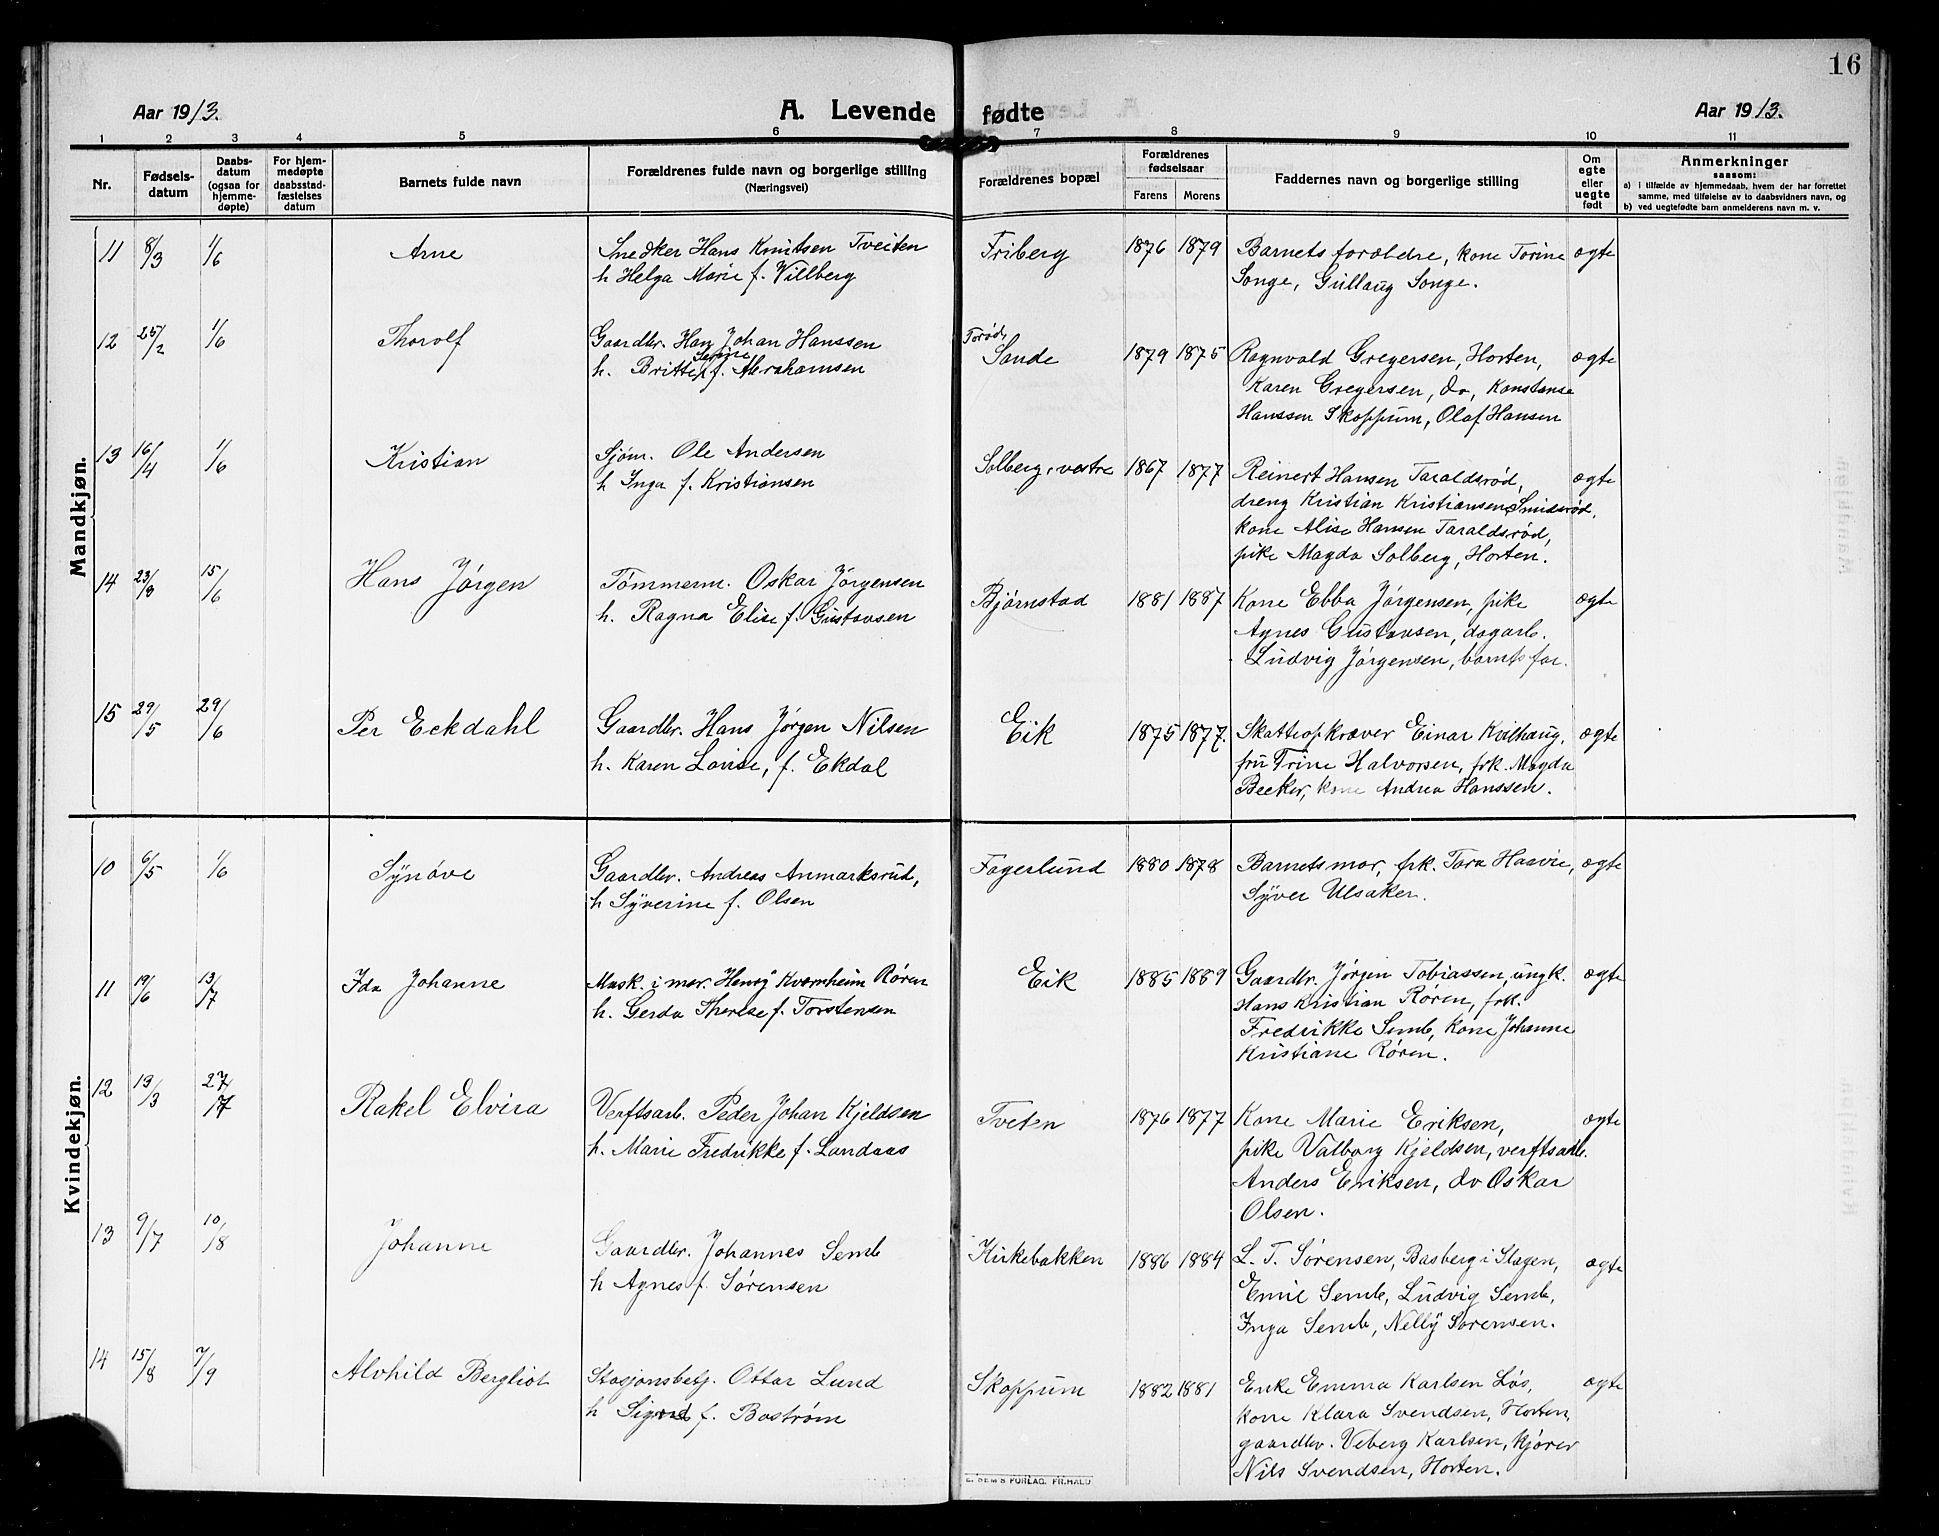 16
Aar 1913.
A. Levende fødte
Aar 1913.
1 2 3 4 5 6 7 8 9 10 11
Nr.
Fødsels-
datum
Daabs-
datum
(ogsaa for
hjemme-
døpte)
For hjem-
medøpte
daabsstad-
fæstelses
datum
Barnets fulde navn
Forældrenes fulde navn og borgerlige stilling
(Næringsvei)
Forældrenes bopæl
Forældrenes
fødselsaar
Farens Morens
Faddernes navn og borgerlige stilling
Om
egte
eller
uegte
født
Anmerkninger
saasom:
a) i tilfælde av hjemmedaab, hvem der har forrettet
samme, med tilføielse av to daabsvidners navn, og
b) ved uegtefødte barn anmelderens navn m. v.
Mandkjøn.
11 8/3 1/6 Arne
Snedker Hans Knutsen Tveiten
h Helga Marie f. Villberg
Friberg 1876 1879
Barnets forældre, kone Torine
Songe, Gullaug Songe.
ægte
12 25/2 1/6 Thorolf
Gaardbr. Hans Johan Hanssen
h. Britte Serine f. Abrahamsen
Torød,
Sande 1879 1875
Ragnvald Gregersen, Horten,
Karen Gregersen, do, Konstanse
Hanssen Skoppum, Olaf Hansen
ægte
13 16/4 1/6 Kristian
Sjøm. Ole Andersen
h Inga f. Kristiansen
Solberg, vestre 1867 1877
Reinert Hansen Taraldsrød,
dreng Kristian Kristiansen Smidsrød,
kone Alise Hansen Taraldsrød,
pike Magda Solberg, Horten.
ægte
14 23/3 15/6 Hans Jørgen
Tømmerm. Oskar Jørgensen
h. Ragna Elise f. Gustavsen
Bjørnstad 1881 1887
Kone Ebba Jørgensen, pike
Agnes Gustavsen, dagarb.
Ludvig Jørgensen, barnets far.
ægte
15 29/5 29/6 Per Eckdahl
Gaardbr. Hans Jørgen Nilsen
h. Karen Lovise, f. Ekdal
Eik 1875 1877.
Skatteopkræver Einar Kvilhaug,
fru Trine Halvorsen, frk. Magda
Becker, kone Andrea Hanssen.
ægte
Kvindekjøn.
10 6/5 1/6 Synøve
Gaardbr. Andreas Anmarksrud,
h Syverine f. Olsen
Fagerlund 1880 1878
Barnets mor, frk. Tora Haavie,
Syver Ulsaker.
ægte
11 19/6 13/7 Ida Johanne
Mask. i mar. Henry Kvarnheim Røren
h. Gerda Therese f. Torstensen
Eik 1885 1889
Gaardbr. Jørgen Tobiassen, ungk.
Hans Kristian Røren, frk.
Fredrikke Semb, kone Johanne
Kristiane Røren.
ægte
12 13/3 27/7 Rakel Elvira
Verftsarb. Peder Johan Kjeldsen
h. Marie Fredrikke f. Landaas
Tveten 1876 1877
Kone Marie Eriksen,
pike Valborg Kjeldsen, verftsarb.
Anders Eriksen, do Oskar
Olsen.
ægte
13 9/7 10/8 Johanne
Gaardbr. Johannes Semb
h Agnes f. Sørensen
Kirkebakken 1886 1884
L. T. Sørensen, Basberg i Slagen,
Emil Semb, Ludvig Semb,
Inga Semb, Nelly Sørensen.
ægte
14 15/8 7/9 Alvhild Bergliot
Stasjonsbetj. Ottar Lund
h Sigrid f. Bostrøm
Skoppum 1882 1881
Enke Emma Karlsen Løs,
kone Klara Svendsen, Horten,
gaardbr. Veberg Karlsen, kjører
Nils Svendsen, Horten.
ægte
E. SEM'S FORLAG. FR.HALD